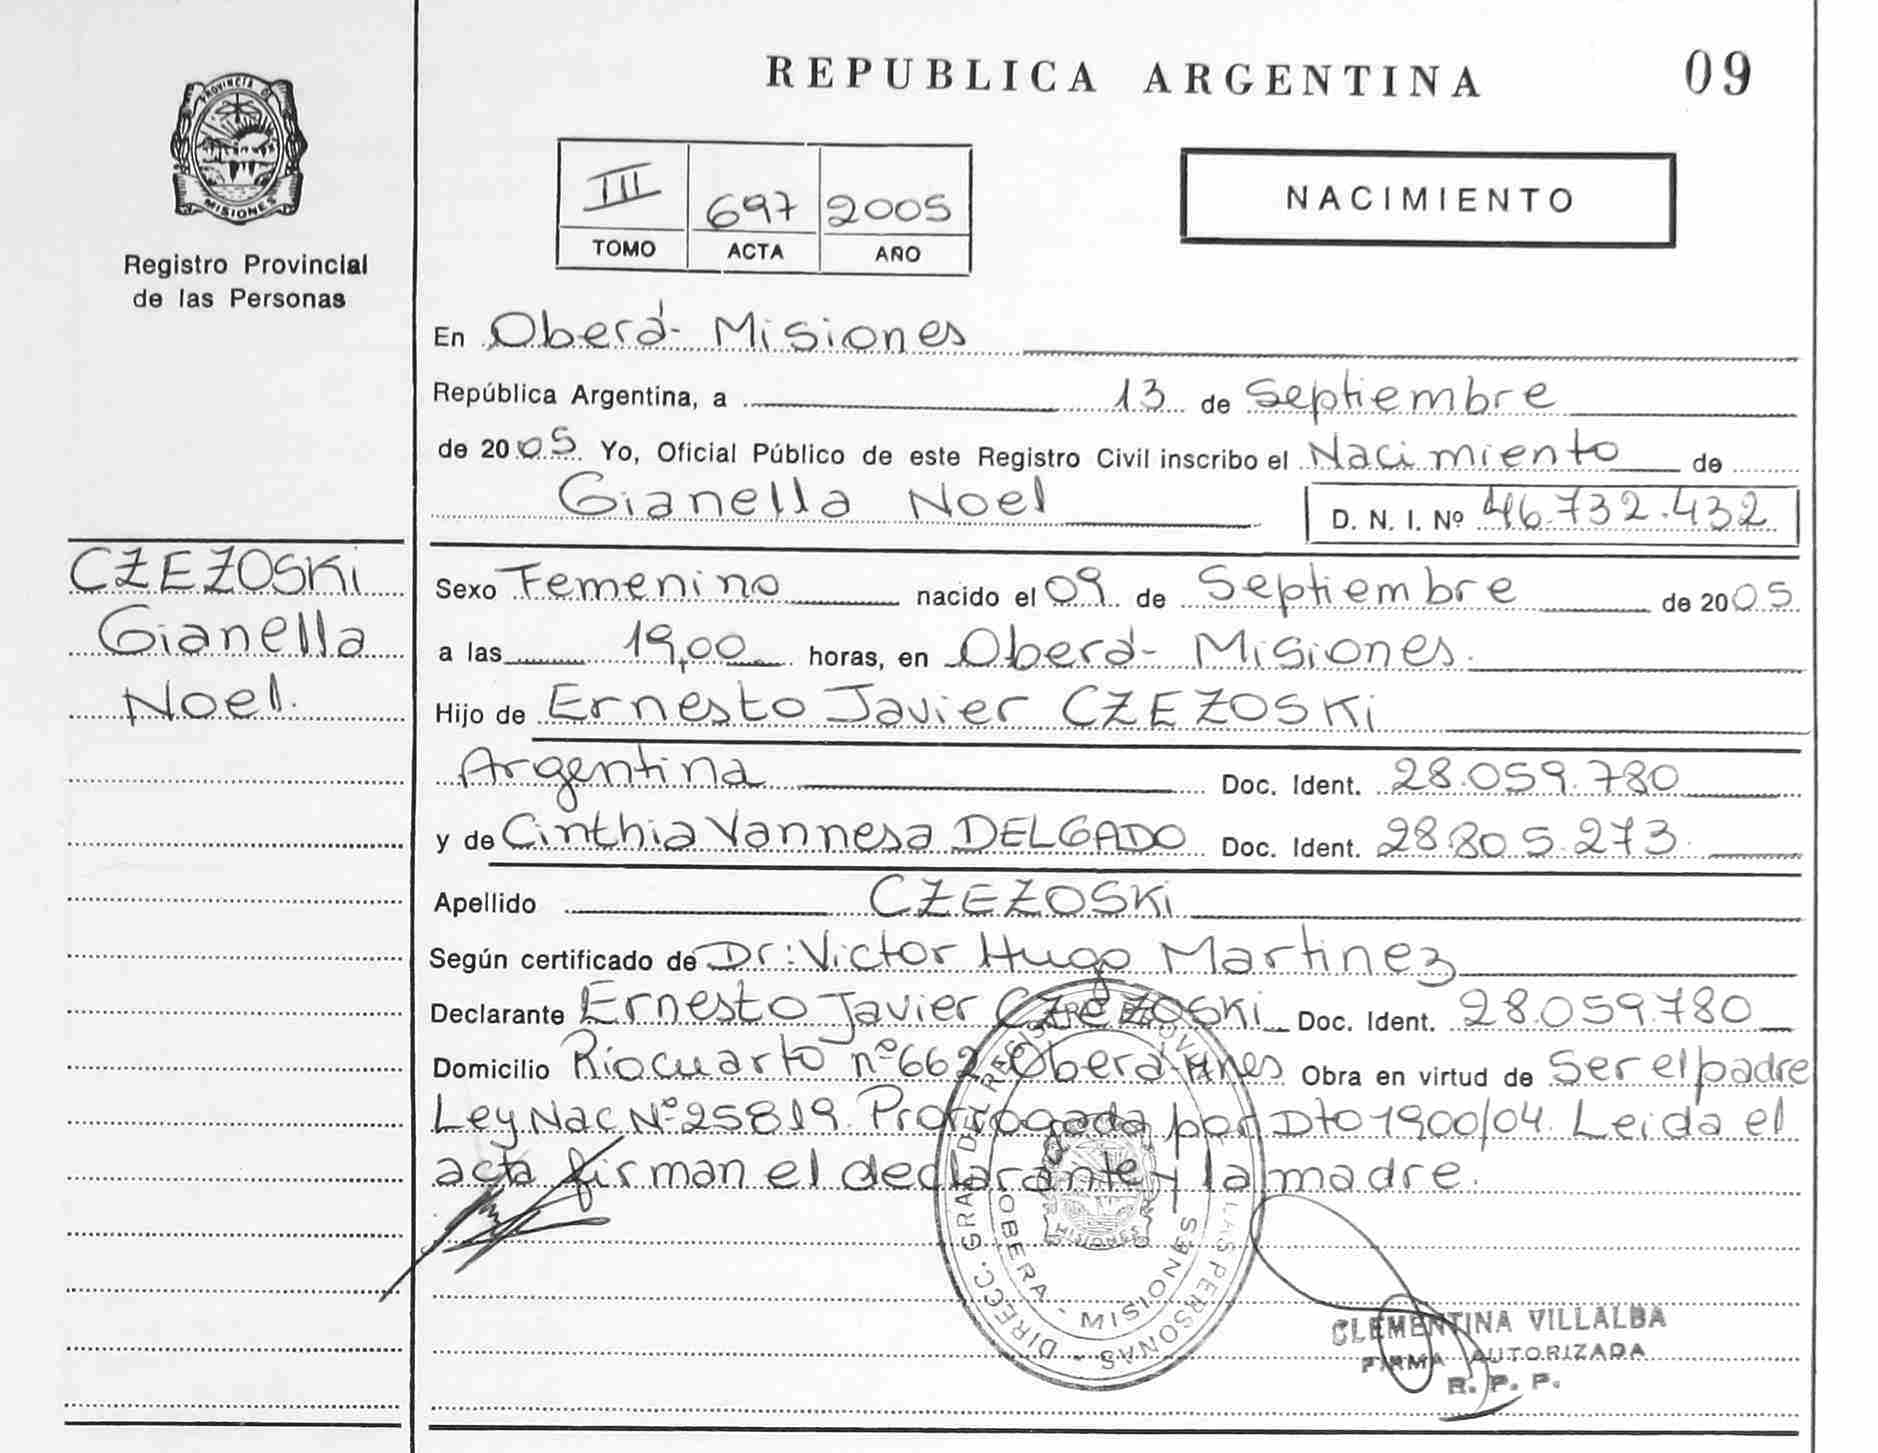 REPUBLICA ARGENTINA
09
PROVINCIA DE
MISIONES
Registro Provincial
de las Personas
III 697 2005
TOMO ACTA AÑO
NACIMIENTO
En Oberá- Misiones
República Argentina, a 13 de Septiembre
de 2005 Yo, Oficial Público de este Registro Civil inscribo el Nacimiento de
Gianella Noel D. N. I. Nº 46.732.432
CZEZOSKi
Gianella
Noel.
Sexo Femenino nacido el 09 de Septiembre de 2005
a las 19,00 horas, en Oberá- Misiones.
Hijo de Ernesto Javier CZEZOSKi
Argentina Doc. Ident. 28.059.780
y de Cinthia Vannesa DELGADO Doc. Ident. 28.805.273.
Apellido CZEZOSKi
Según certificado de Dr: Victor Hugo Martinez
Declarante Ernesto Javier CZEZOSKi Doc. Ident. 28.059.780
Domicilio Riocuarto nº 662 Oberá-Mnes Obra en virtud de Ser el padre
Ley Nac Nº 25819. Prorrogada por Dto 1900/04. Leida el
acta firman el declarante y la madre.
DIRECC. GRAL DEL REGISTRO PROV. LAS PERSONAS
OBERA - MISIONES
MISIONES
CLEMENTINA VILLALBA
FIRMA AUTORIZADA
R. P. P.